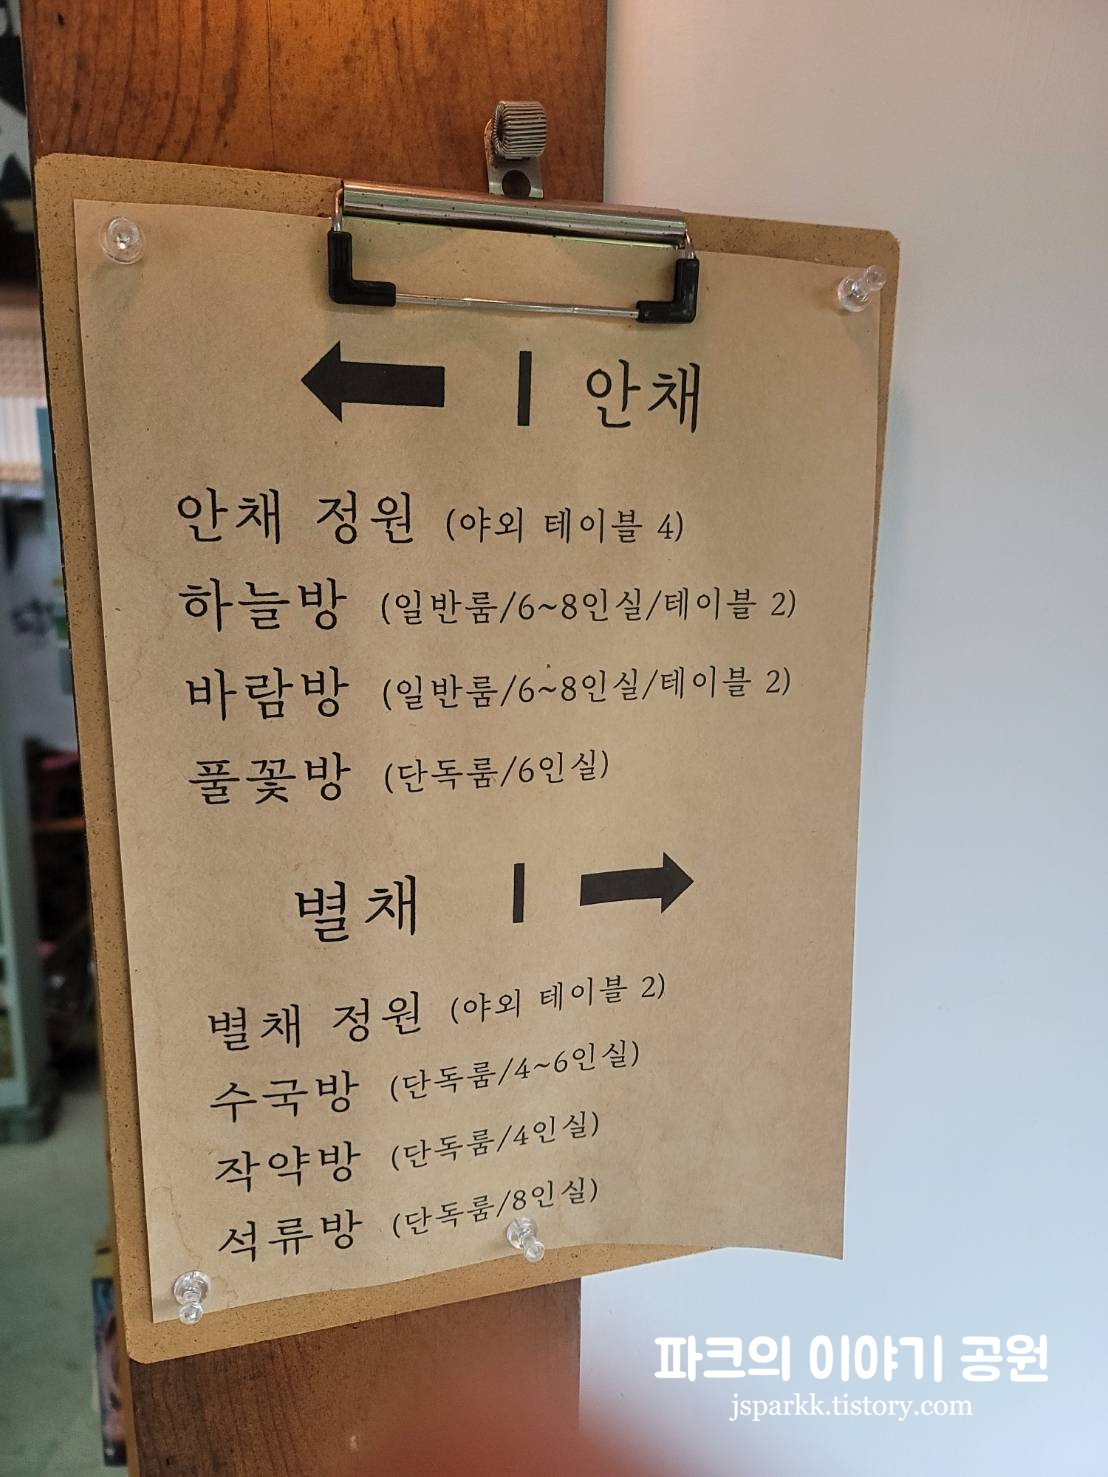 안채
안채 정원 (야외 테이블 4)
하늘방 (일반룸/6~8인실/테이블 2)
바람방 (일반룸/6~8인실/테이블 2)
풀꽃방 (단독룸/6인실)
별채
별채 정원 (야외 테이블 2)
수국방 (단독룸/4~6인실)
작약방 (단독룸/4인실)
석류방 (단독룸/8인실)
파크의 이야기 공원
jsparkk.tistory.com